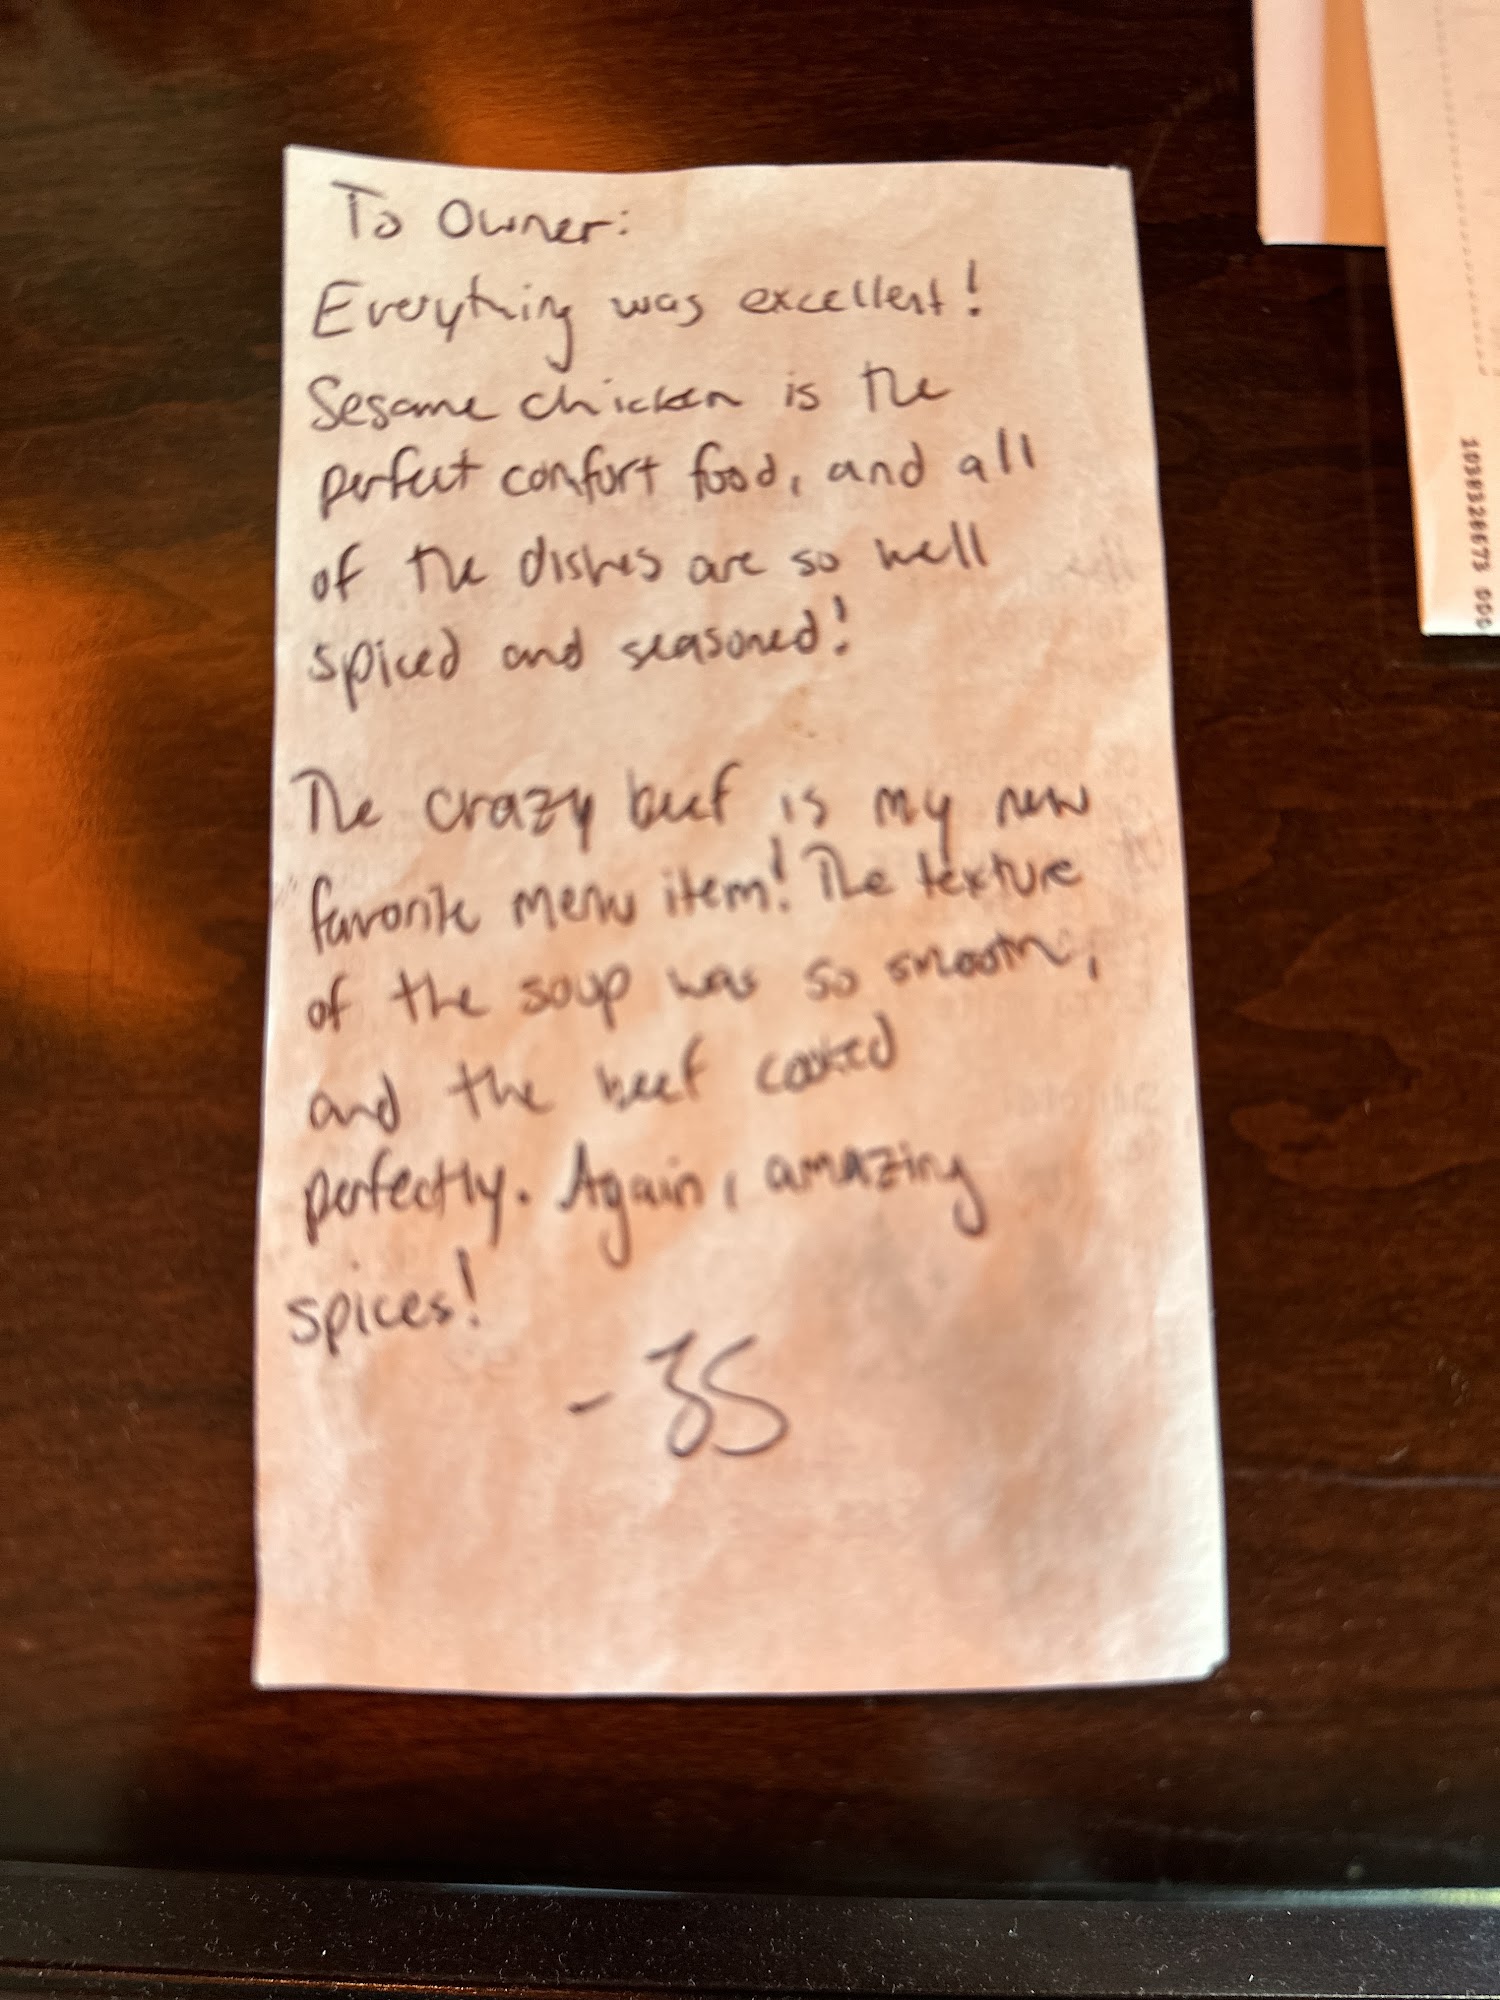 To Owner:
Everything was excellent!
Sesame chicken is the
perfect comfort food, and all
of the dishes are so well
spiced and seasoned!
The crazy beef is my new
favorite menu item! The texture
of the soup was so smooth,
and the beef cooked
perfectly. Again, amazing
spices!
1038326673